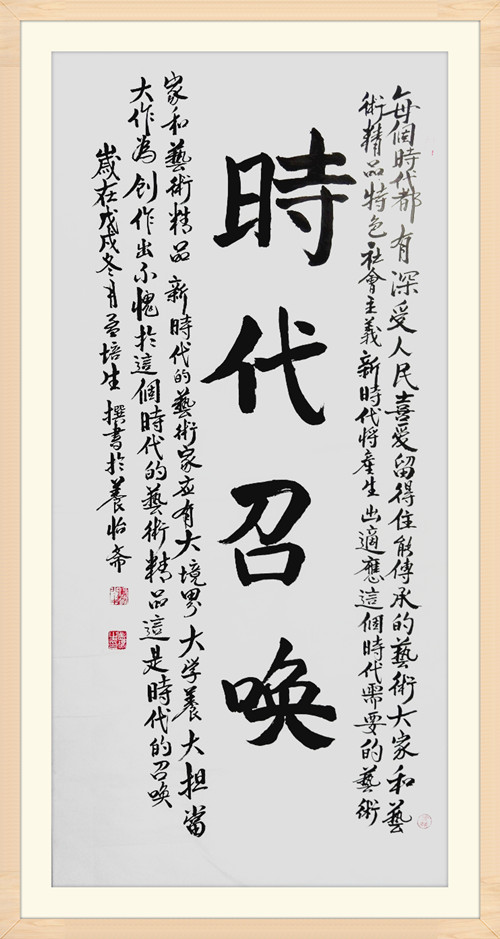 每個時代都有深受人民喜愛留得住能傳承的藝術大家和藝
術精品特色社會主義新時代將產生出適應這個時代需要的藝術
時代召唤
家和藝術精品新時代的藝術家应有大境界大学養大担當
大作為創作出不愧於這個時代的藝術精品這是時代的召唤
歲在戊戌冬月孟培生撰書於養怡斋